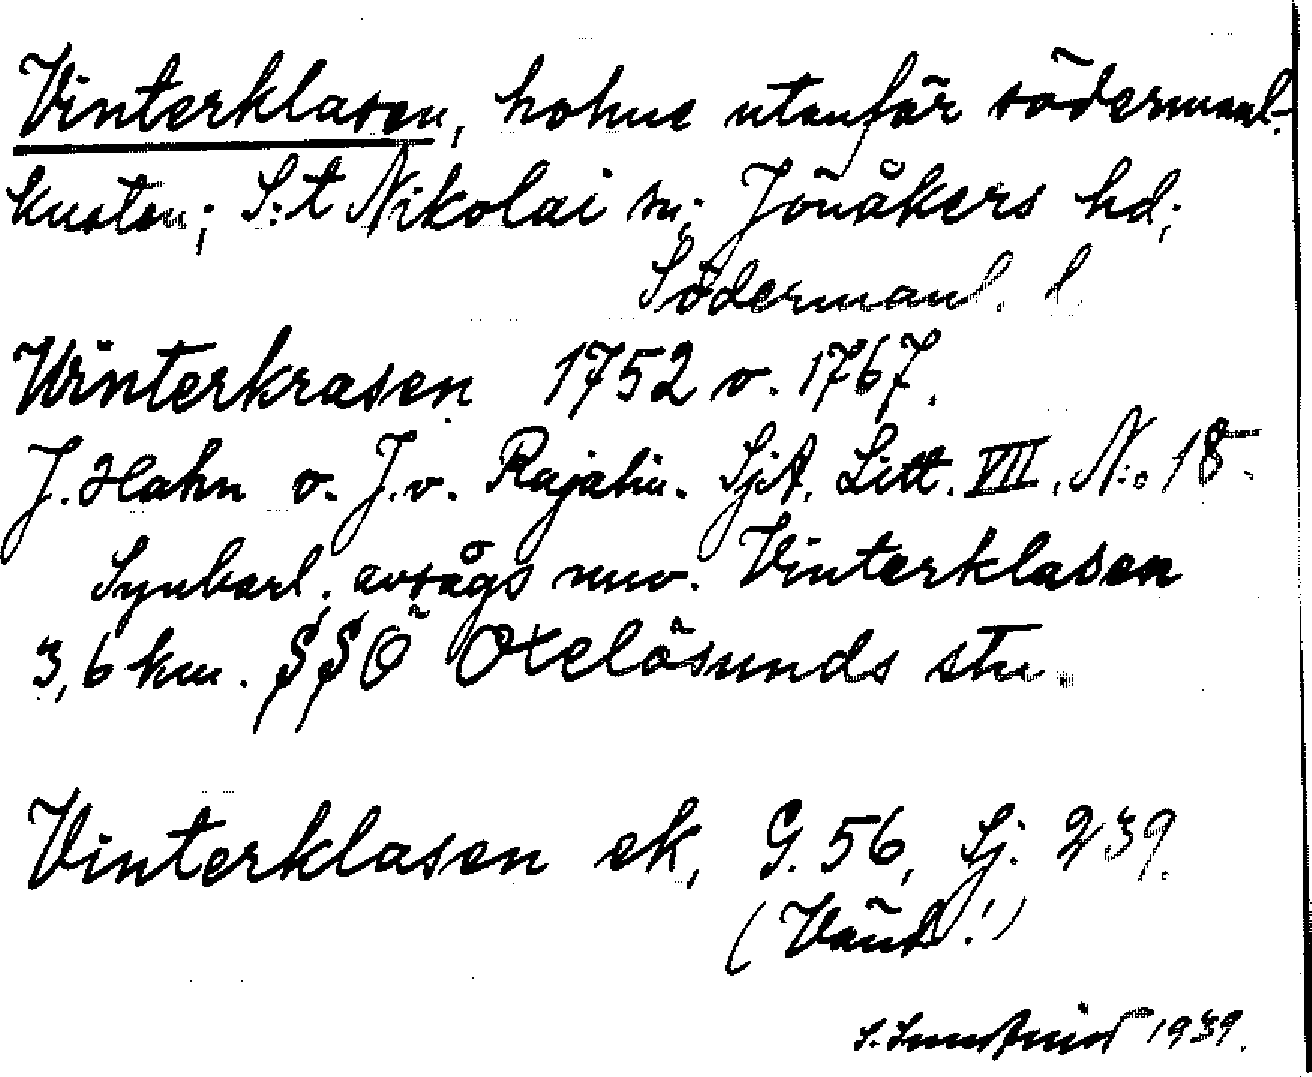 Vinterklasen, holme utanför södermanl.
kusten; S:t Nikolai sn; Jönåkers hd;
Södermanl. l.
Winterkrasen 1752 o. 1767.
J. Hahn o. J. v. Rajalin. SjA. Litt. VII. N:o 18.
Synbarl. avsågs nuv. Vinterklasen
3,6 km. SSÖ Oxelösunds stn.
Vinterklasen ek, G. 56, Sj. 239.
(Vänd!)
1939.